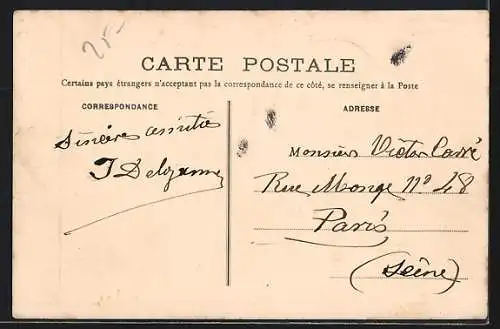 25-
CARTE POSTALE
Certains pays étrangers n'acceptant pas la correspondance de ce côté, se renseigner à la Poste
CORRESPONDANCE
ADRESSE
Sincères amitiés
J Delozanne
Monsieur Victor Carré
Rue Monge nº 48
Paris
(Seine)